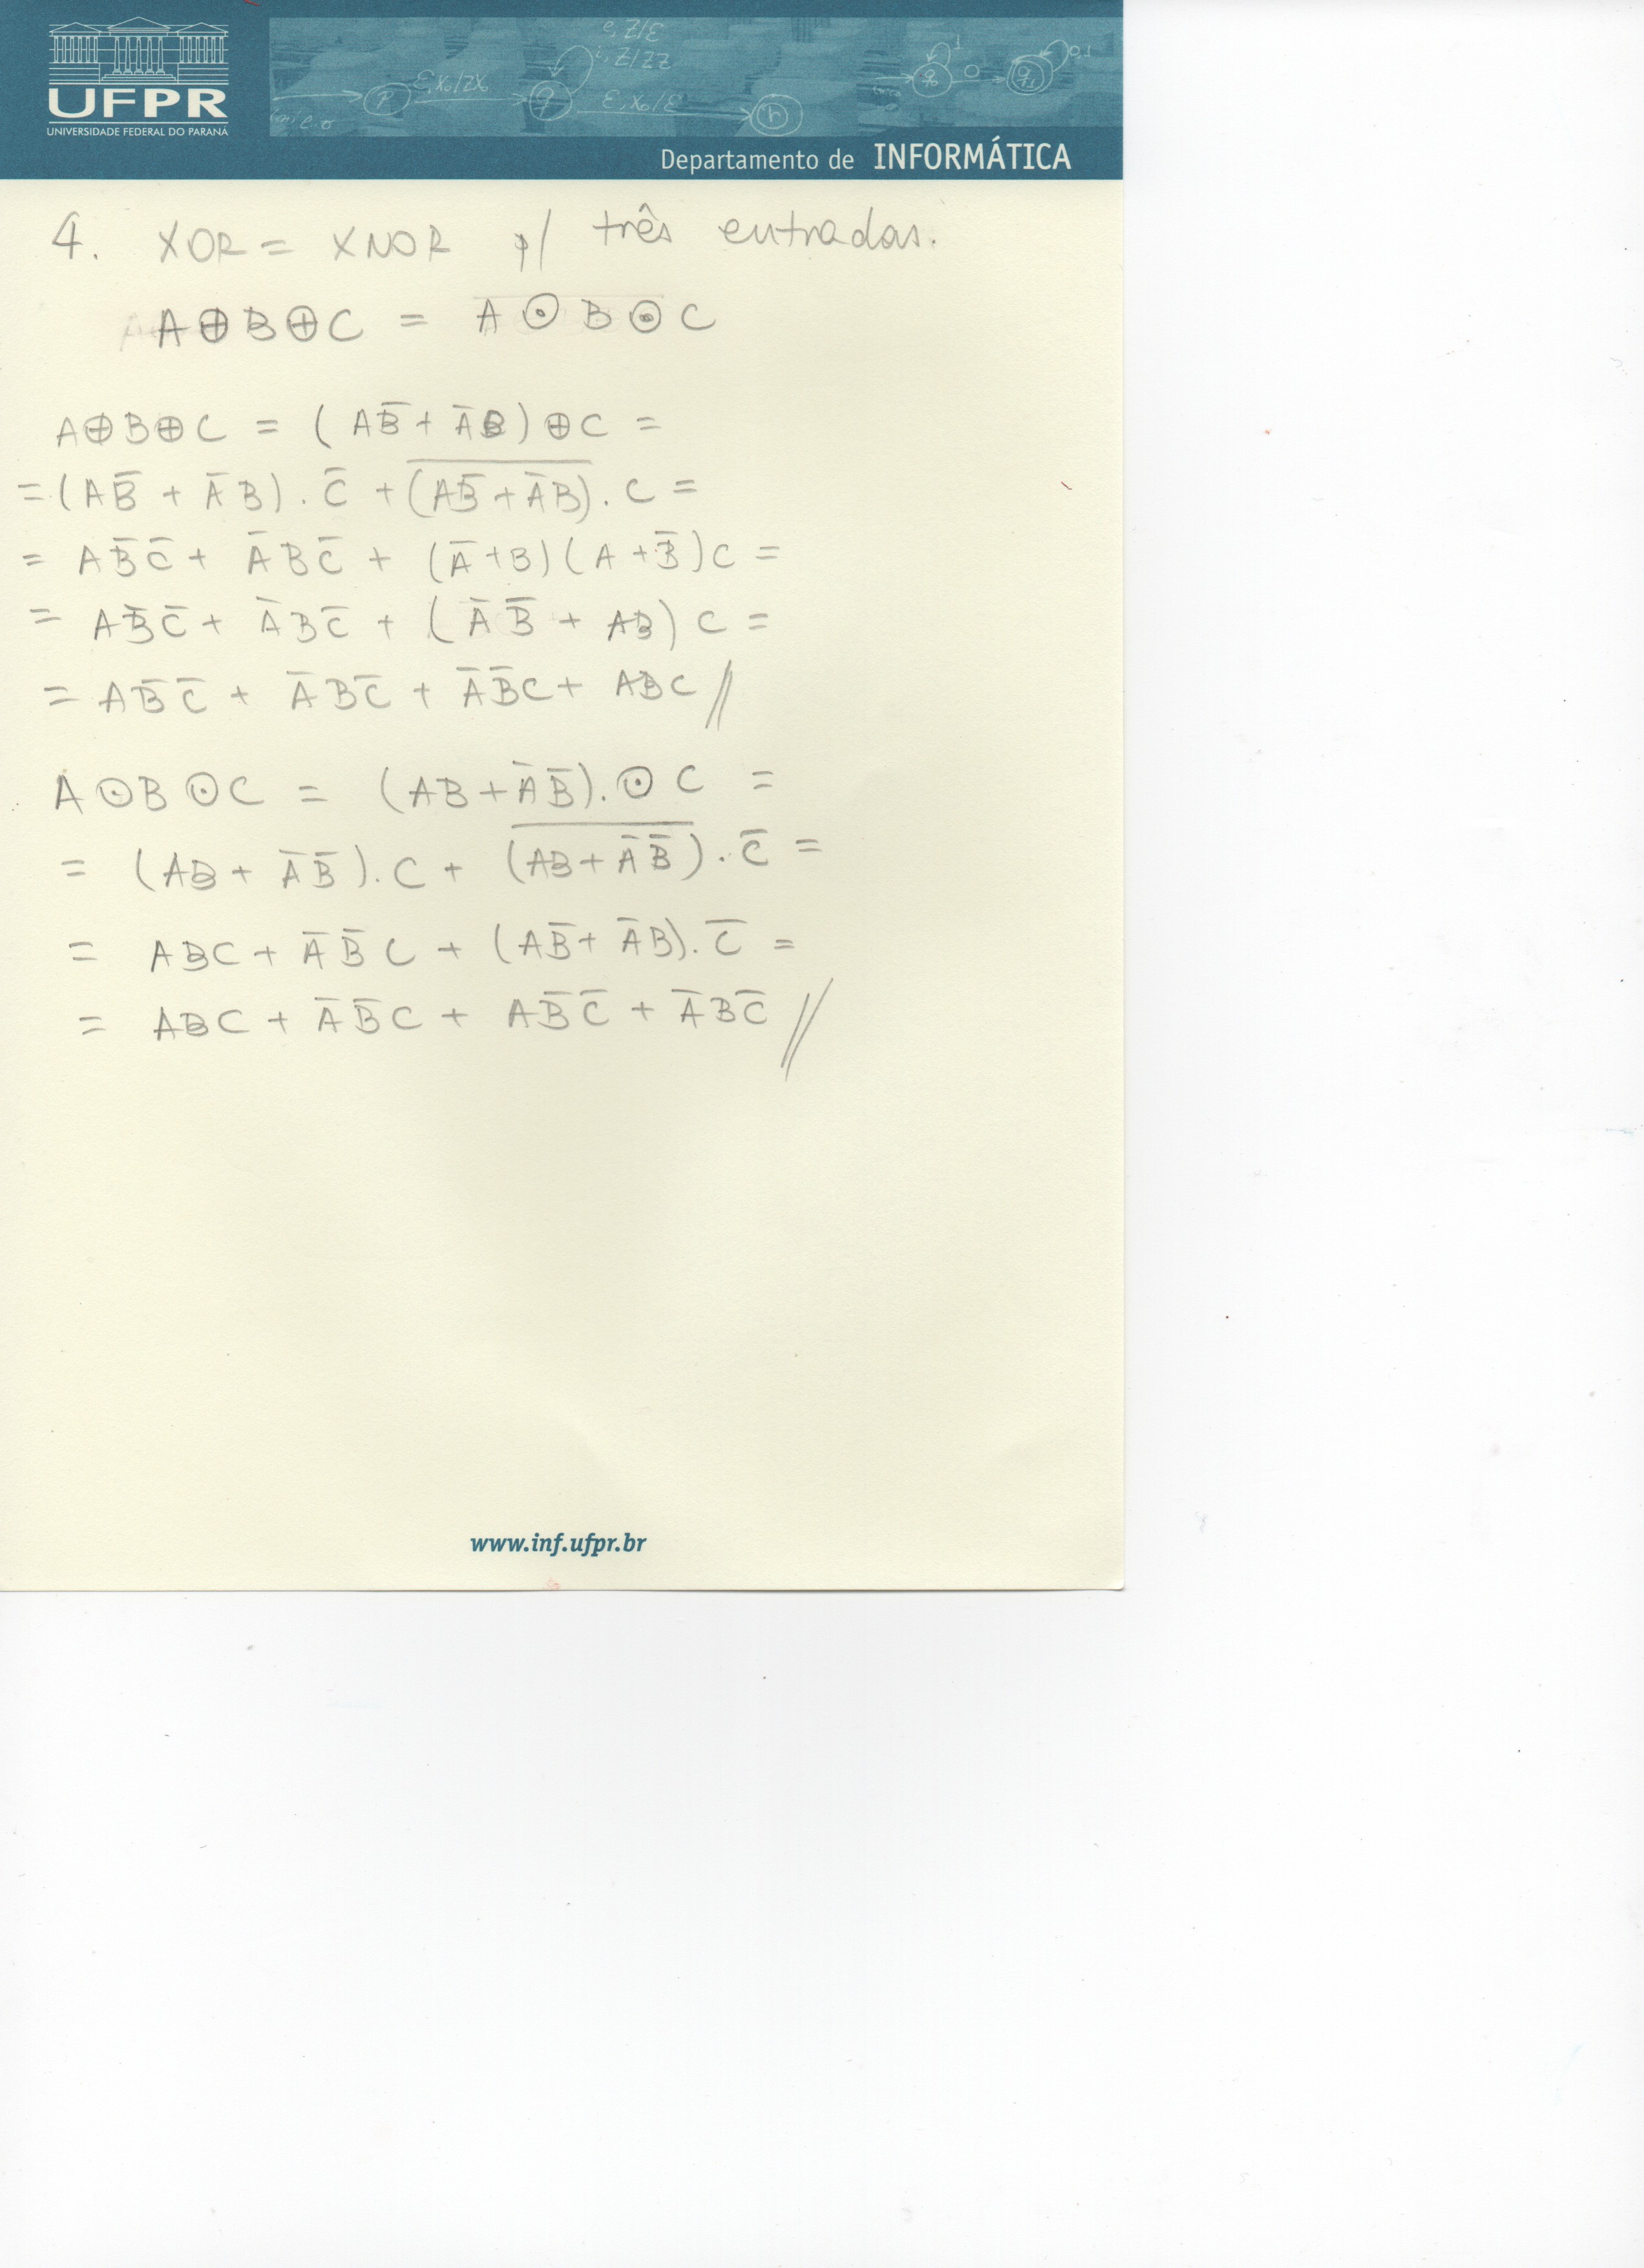 UFPR
UNIVERSIDADE FEDERAL DO PARANÁ
Departamento de INFORMÁTICA
4. XOR = XNOR p/ três entradas.
A⊕B⊕C = A⊙B⊙C
A⊕B⊕C = (AB̅ + A̅B)⊕C =
= (AB̅ + A̅B).C̅ + \overline{(AB̅ + A̅B)}.C =
= AB̅C̅ + A̅BC̅ + (A̅+B)(A+B̅)C =
= AB̅C̅ + A̅BC̅ + (A̅B̅ + AB)C =
= AB̅C̅ + A̅BC̅ + A̅B̅C + ABC //
A⊙B⊙C = (AB + A̅B̅).⊙C =
= (AB + A̅B̅).C + \overline{(AB + A̅B̅)}.C̅ =
= ABC + A̅B̅C + (AB̅ + A̅B).C̅ =
= ABC + A̅B̅C + AB̅C̅ + A̅BC̅ //
www.inf.ufpr.br